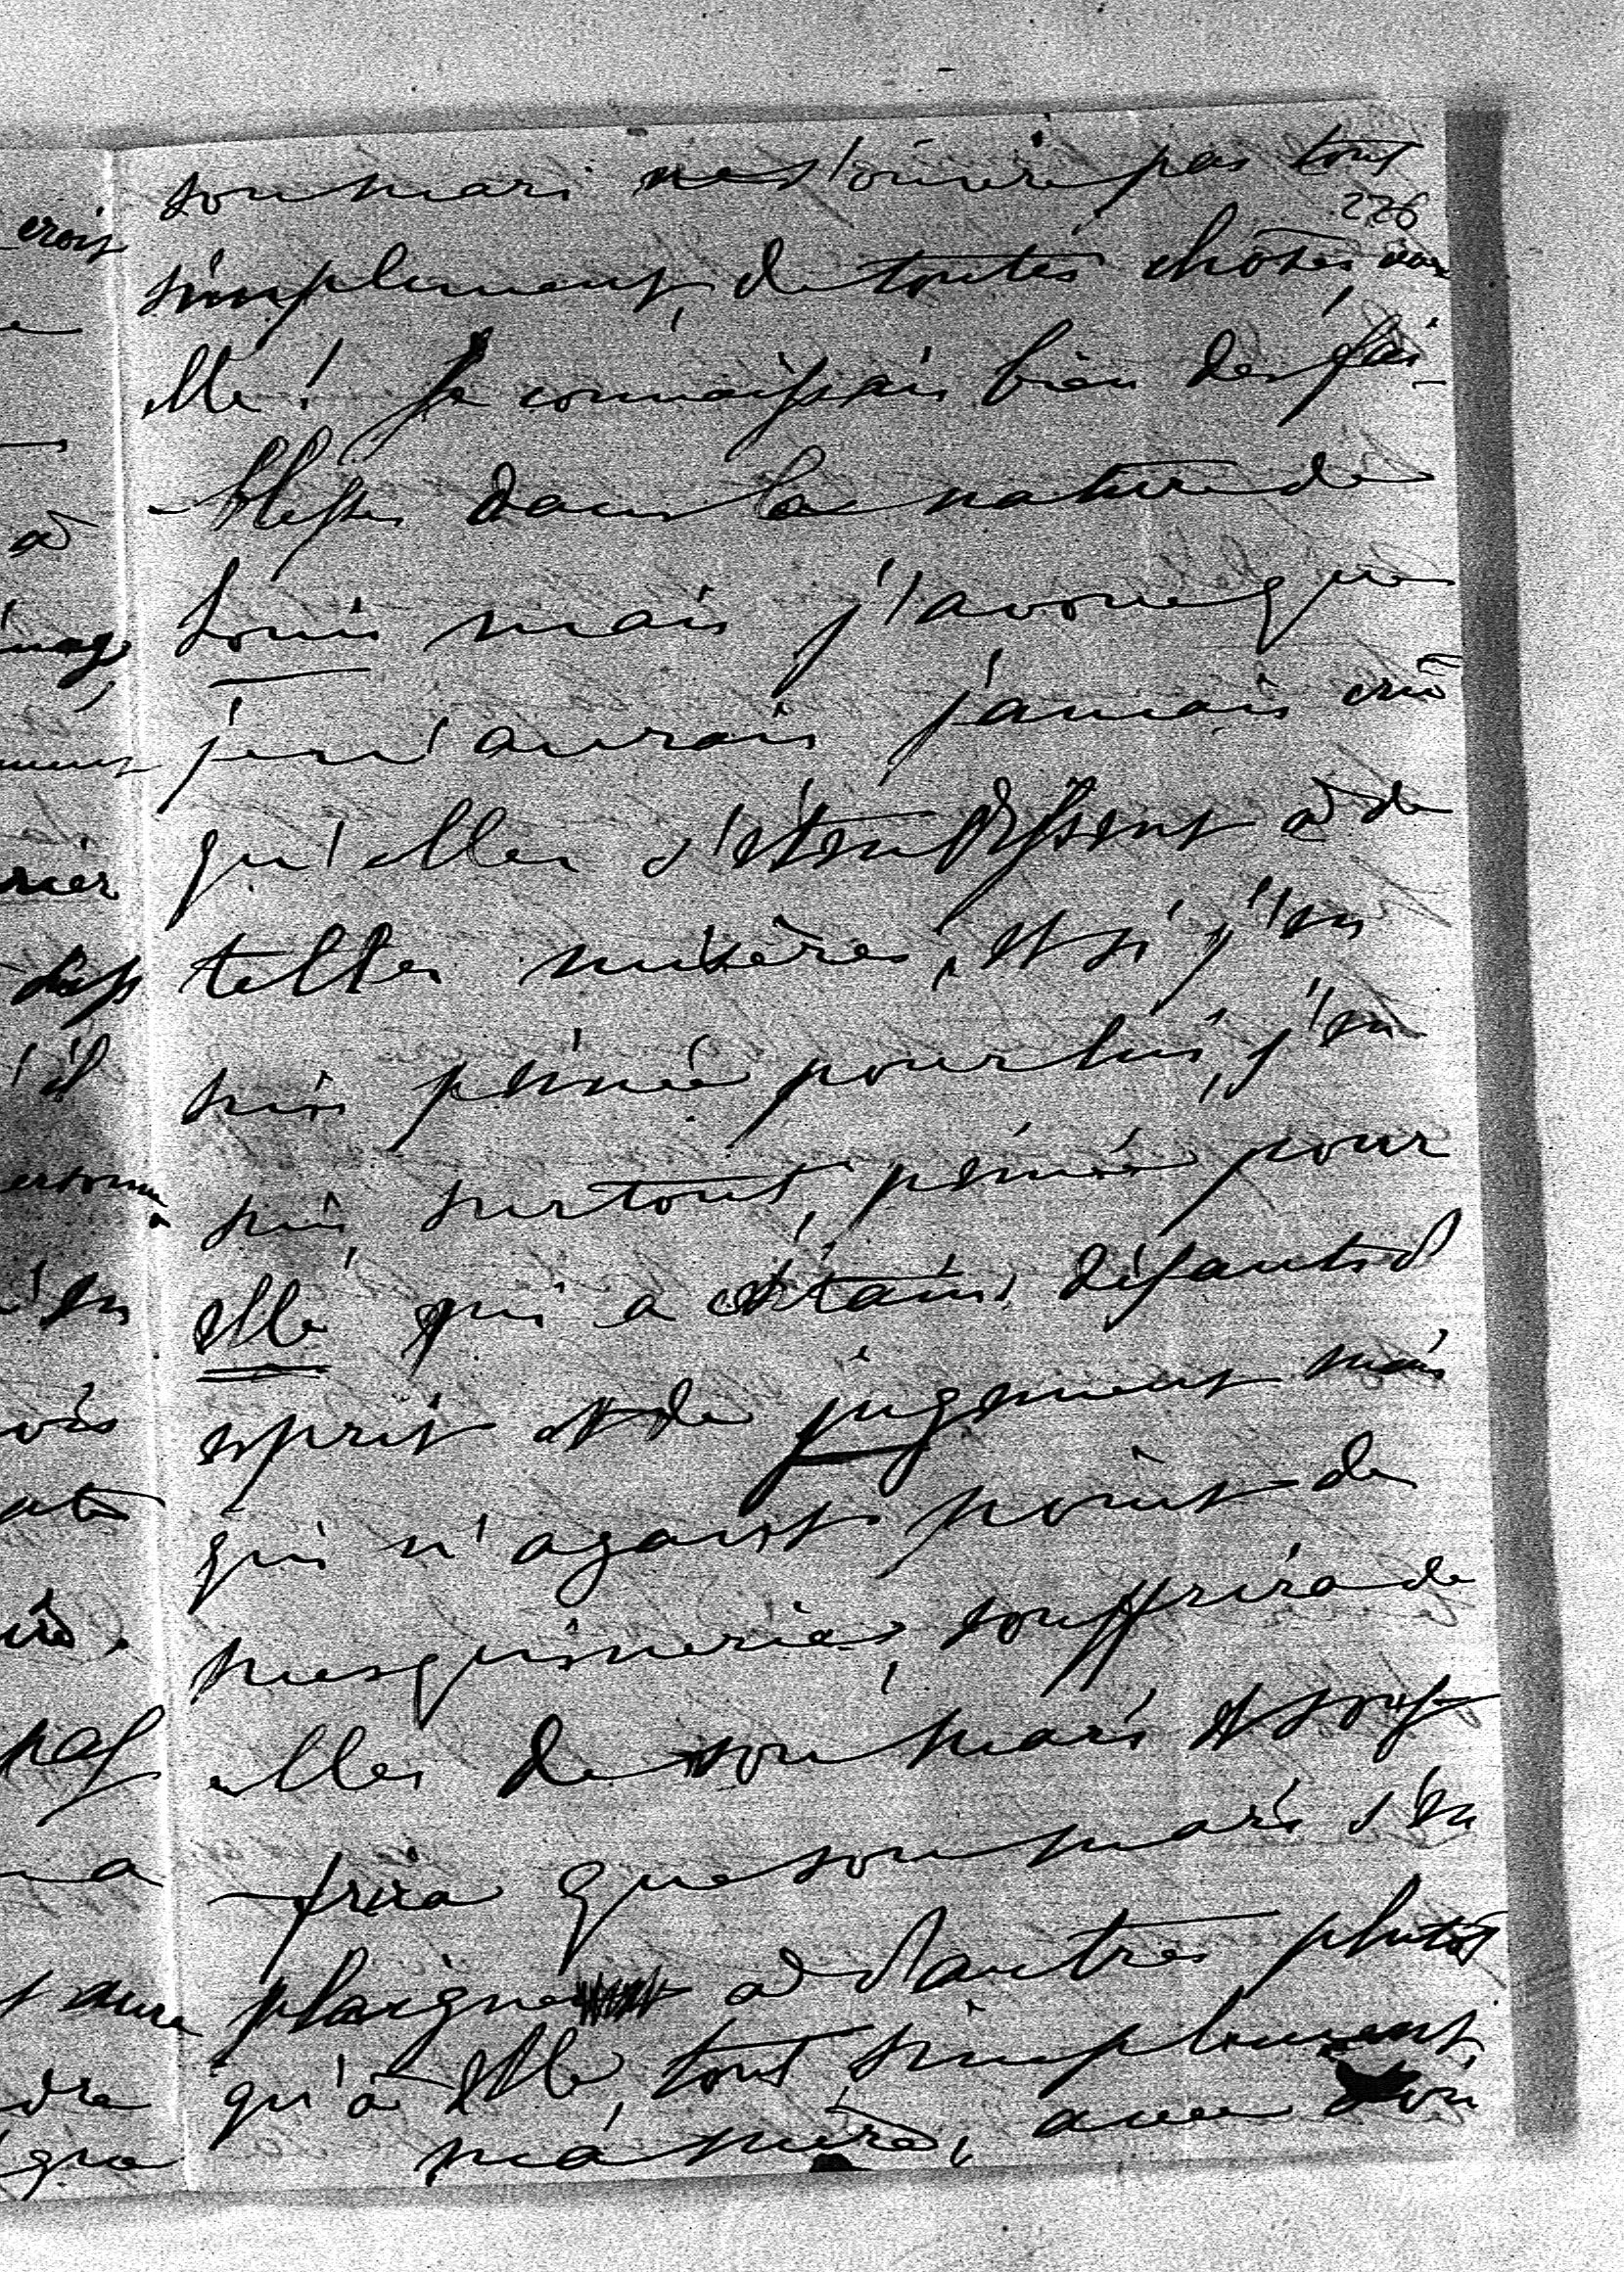 son mari ne s'ouvre pas tout
226
simplement, de toutes choses avec
elle! Je connaissais bien des fai-
-blesses dans la nature de
Louis mais j'avoue que
je n'aurais jamais crû
qu'elles s'étendissent à de
telles misères, et si j'en
suis peinée pour lui, j'en
suis surtout, peinée pour
elle qui a certains défauts d'
esprit et de jugement mais
qui n'ayant point de
mesquineries, souffrira de
celles de son mari et souf-
-frira que son mari s'en
plaigne à d'autres plutôt
qu'à elle, tout simplement,
ma mère, avec son
crois
à
rier
'il
'en
pas
a
dre